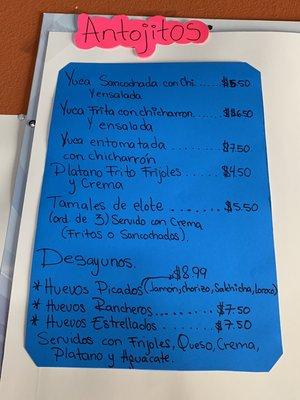 Antojitos
Yuca Sancochada con Chi.....$6.50
Y ensalada
Yuca Frita con chicharron $6.50
Y ensalada
Yuca entomatada ......$7.50
con chicharrón
Platano Frito Frijoles ......$4.50
y Crema
Tamales de elote .......$5.50
(ord. de 3) Servido con Crema
(Fritos o Sancochados).
Desayunos.
$8.99
* Huevos Picados (Jamón, chorizo, Salchicha, Loroco)
* Huevos Rancheros..........$7.50
* Huevos Estrellados ........$7.50
Servidos con Frijoles, Queso, Crema,
Platano y Aguacate.